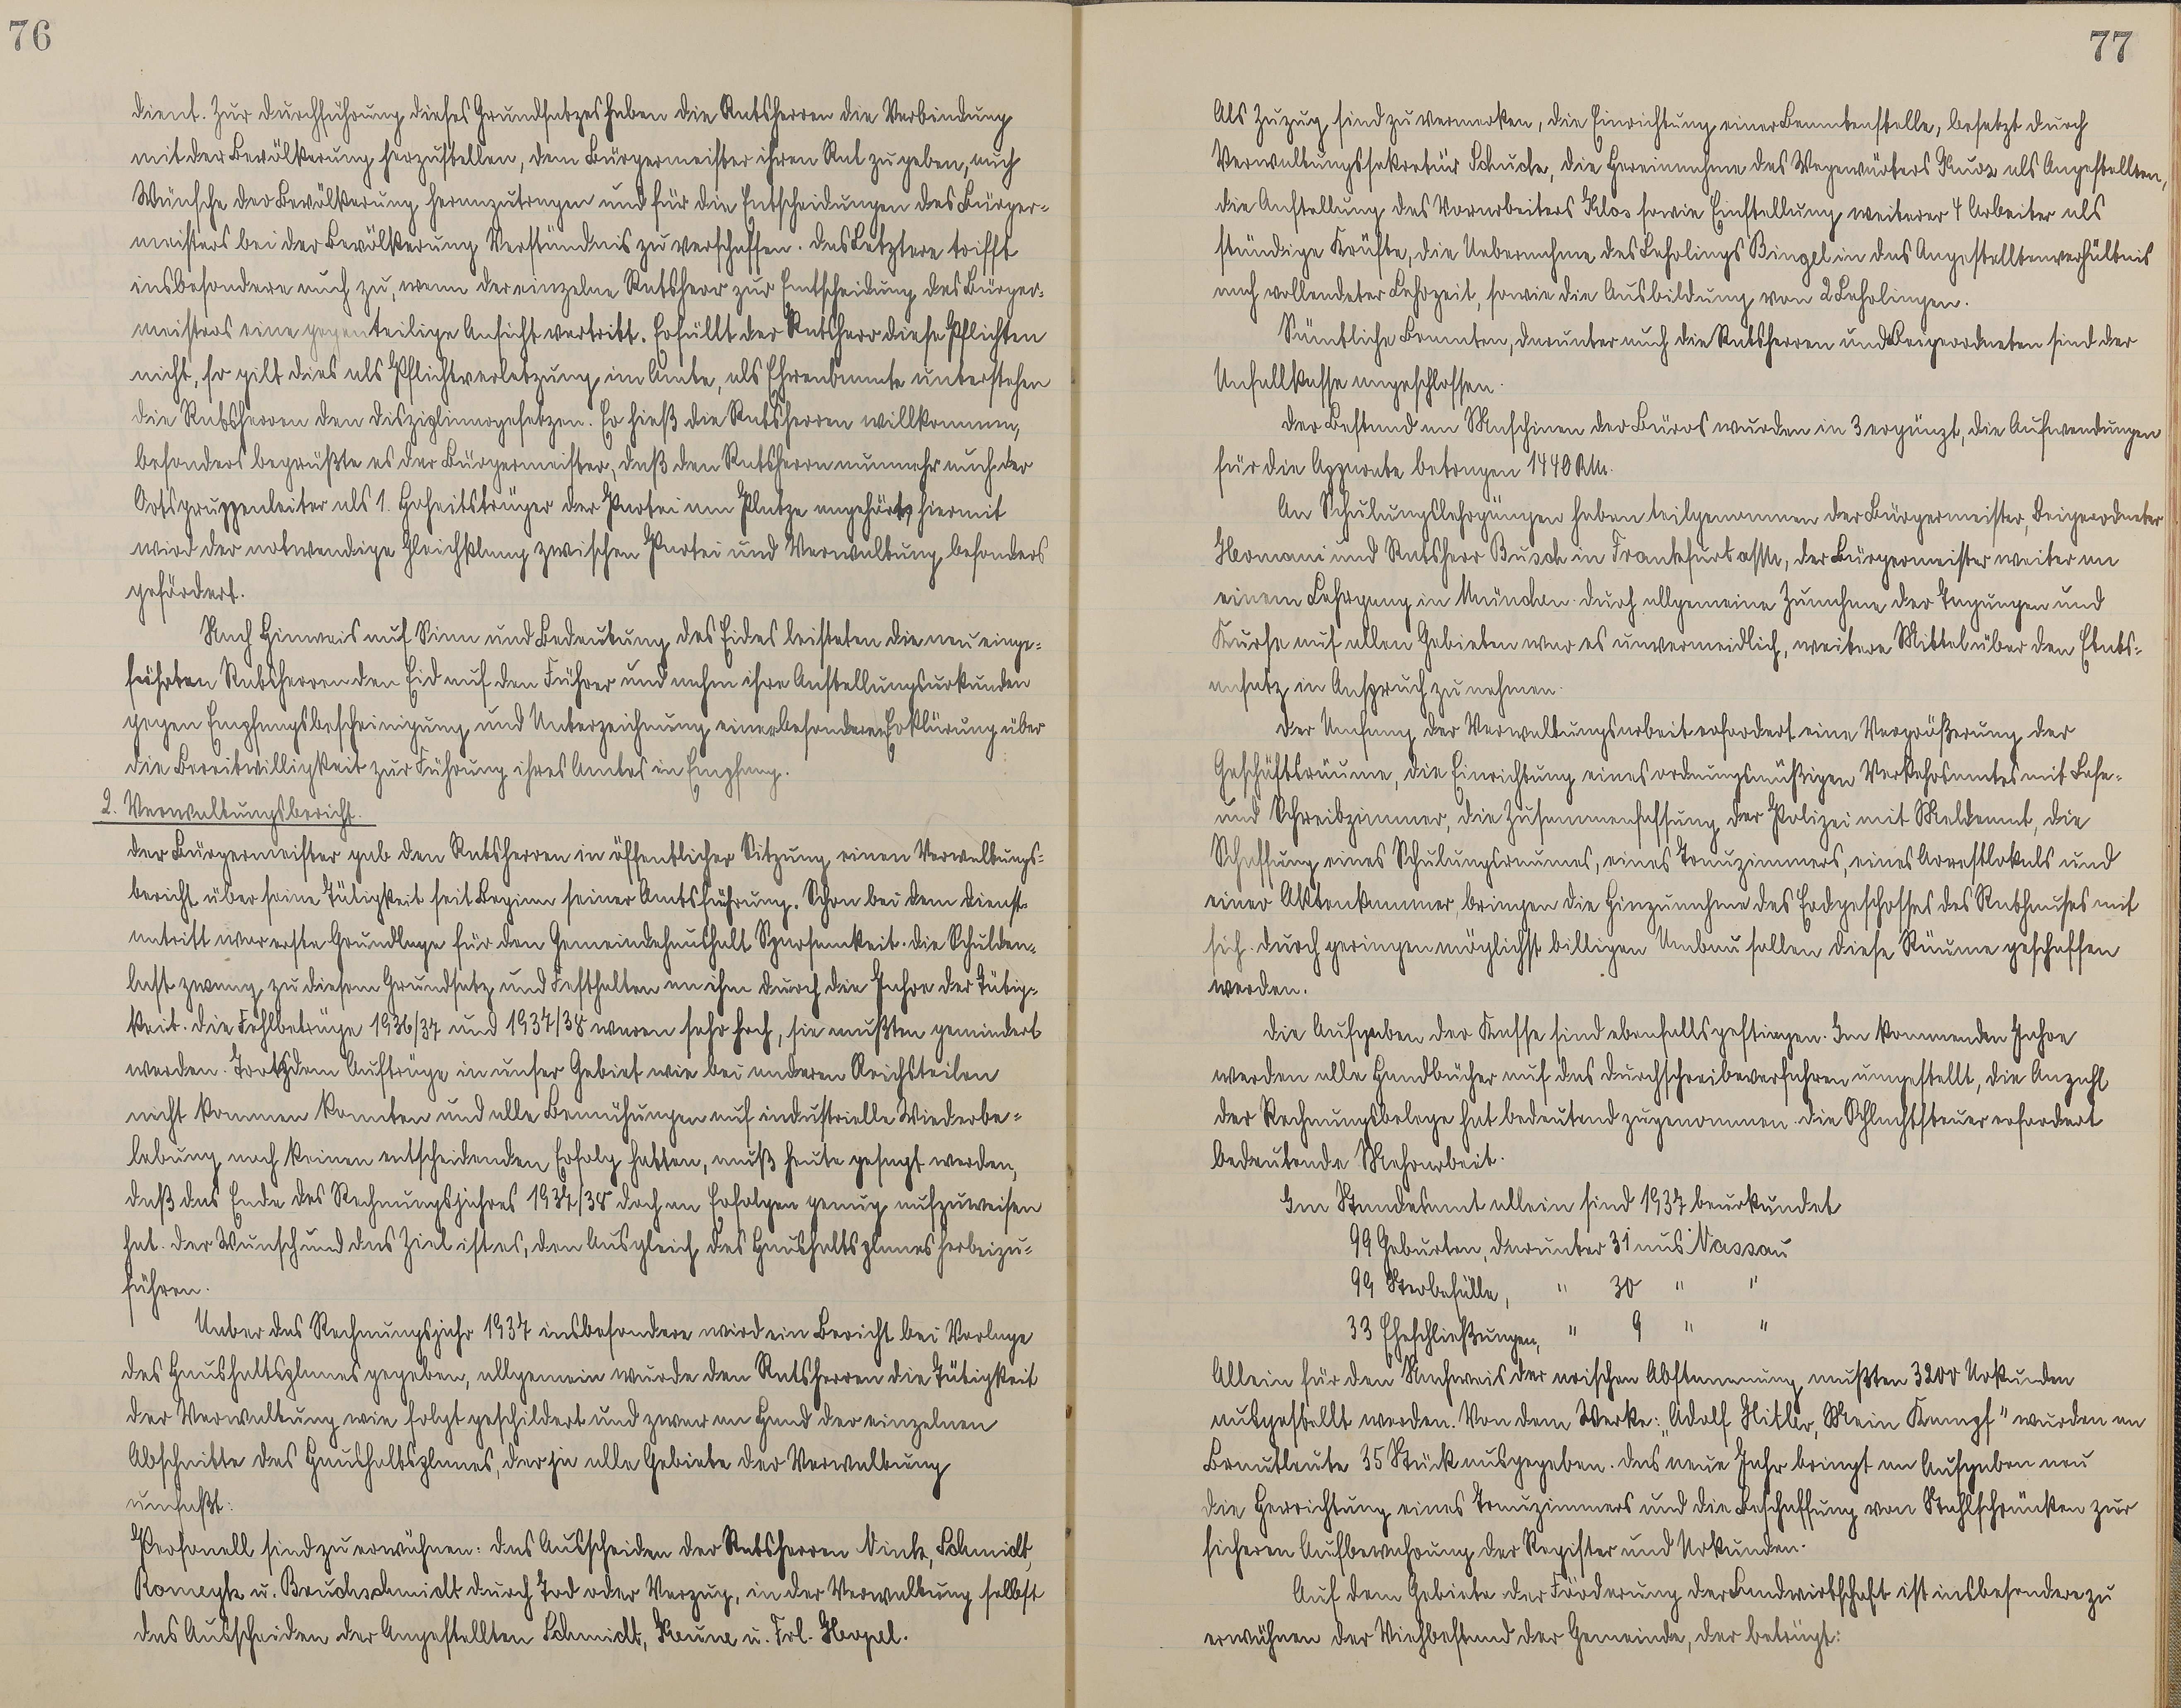 76
dient. Zur Durchführung dieses Grundsatzes haben die Ratsherren die Verbindung
mit der Bevölkerung herzustellen, dem Bürgermeister ihren Rat zu geben, auch
Wünsche der Bevölkerung heranzutragen und für die Entscheidungen des Bürger=
meisters bei der Bevölkerung Verständnis zu verschaffen. Das Letztere trifft
insbesondere auch zu, wenn der einzelne Ratsherr zur Entscheidung des Bürger=
meisters eine gegenteilige Ansicht vertritt. Erfüllt der Ratsherr diese Pflichten
nicht, so gilt dies als Pflichtverletzung im Amte, als Ehrenbeamte unterstehen
die Ratsherren den Disziplinargesetzen. Er hieß die Ratsherren willkommen,
besonders begrüßte es der Bürgermeister, daß den Ratsherrn nunmehr auch der
Ortsgruppenleiter als 1. Hoheitsträger der Partei am Platze angehört, hiermit
wird der notwendige Gleichklang zwischen Partei und Verwaltung besonders
gefördert.
Nach Hinweis auf Sinn und Bedeutung des Eides leisteten die neu einge=
führten Ratsherren den Eid auf den Führer und nahm ihre Anstellungsurkunden
gegen Empfangsbescheinigung und Unterzeichnung einer besonderen Erklärung über
die Bereitwilligkeit zur Führung ihres Amtes in Empfang.
2. Verwaltungsbericht.
Der Bürgermeister gab den Ratsherren in öffentlicher Sitzung einen Verwaltungs=
bericht über seine Tätigkeit seit Beginn seiner Amtsführung. Schon bei dem Dienst=
antritt war erste Grundlage für den Gemeindehaushalt Sparsamkeit. Die Schulden=
last zwang zu diesem Grundsatz und Festhalten an ihm durch die Jahre der Tätig=
keit. Die Fehlbeträge 1936/37 und 1937/38 waren sehr hoch, sie mußten gemindert
werden. Trotzdem Aufträge in unser Gebiet wie bei anderen Reichsteilen
nicht kommen konnten und alle Bemühungen auf industrielle Wiederbe=
lebung noch keinen entscheidenden Erfolg hatten, muß heute gesagt werden,
daß das Ende des Rechnungsjahres 1937/38 doch an Erfolgen genug aufzuweisen
hat. Der Wunsch und das Ziel ist es, den Ausgleich des Haushaltsplanes herbeizu=
führen.
Ueber das Rechnungsjahr 1937 insbesondere wird ein Bericht bei Vorlage
des Haushaltsplanes gegeben, allgemein wurde den Ratsherren die Tätigkeit
der Verwaltung wie folgt geschildert und zwar an Hand der einzelnen
Abschnitte des Haushaltsplanes, der ja alle Gebiete der Verwaltung
umfaßt:
Personell sind zu erwähnen: das Ausscheiden der Ratsherren Vink, Schmidt,
Romeyk u. Bruchschmidt durch Tod oder Verzug, in der Verwaltung selbst
das Ausscheiden der Angestellten Schmidt, Keune u. Frl. Hopel.
77
Als Zuzug sind zu vermerken, die Einrichtung einer Beamtenstelle, besetzt durch
Verwaltungssekretär Schuck, die Hereinnahme des Wegewärters Kurz als Angestellten,
die Anstellung des Vorarbeiters Klos sowie Einstellung weiterer 4 Arbeiter als
ständige Kräfte, die Uebernahme des Lehrlings Bingel in das Angestelltenverhältnis
nach vollendeter Lehrzeit, sowie die Ausbildung von 2 Lehrlingen.
Sämtliche Beamten, darunter auch die Ratsherren und Beigeordneten sind der
Unfallkasse angeschlossen.
Der Bestand an Maschinen der Büros wurden in 3 ergänzt, die Aufwendungen
für die Apparate betragen 1440 RM.
An Schulungslehrgängen haben teilgenommen der Bürgermeister, Beigeordneter
Homani und Ratsherr Busch in Frankfurt a/M, der Bürgermeister weiter an
einem Lehrgang in München. Durch allgemeine Zunahme der Tagungen und
Kurse auf allen Gebieten war es unvermeidlich, weitere Mittel über den Etats=
ansatz in Anspruch zu nehmen.
Der Umfang der Verwaltungsarbeit erfordert eine Vergrößerung der
Geschäftsräume, die Einrichtung eines ordnungsmäßigen Verkehrsamtes mit Lese=
und Schreibzimmer, die Zusammenfassung der Polizei mit Meldeamt, die
Schaffung eines Schulungsraumes, eines Trauzimmers, eines Arrestlokals und
einer Aktenkammer, bringen die Hinzunahme des Erdgeschosses des Rathauses mit
sich. Durch geringen möglichst billigen Umbau sollen diese Räume geschaffen
werden.
Die Aufgaben der Kasse sind ebenfalls gestiegen. Im kommenden Jahre
werden alle Handbücher auf das Durchschreibeverfahren umgestellt, die Anzahl
der Rechnungsbelege hat bedeutend zugenommen. Die Schlachtsteuer erfordert
bedeutende Mehrarbeit.
Im Standesamt allein sind 1937 beurkundet
99 Geburten, darunter 31 aus Nassau
99 Sterbefälle, " 30 " "
33 Eheschließungen, " 9 " "
Allein für den Nachweis der arischen Abstammung mußten 3200 Urkunden
ausgestellt werden. Von dem Werke: „Adolf Hitler, Mein Kampf" wurden an
Brautleute 35 Stück ausgegeben. Das neue Jahr bringt an Aufgaben neu
die Herrichtung eines Trauzimmers und die Beschaffung von Stahlschränken zur
sicheren Aufbewahrung der Register und Urkunden.
Auf dem Gebiete der Förderung der Landwirtschaft ist insbesondere zu
erwähnen der Viehbestand der Gemeinde, der beträgt: